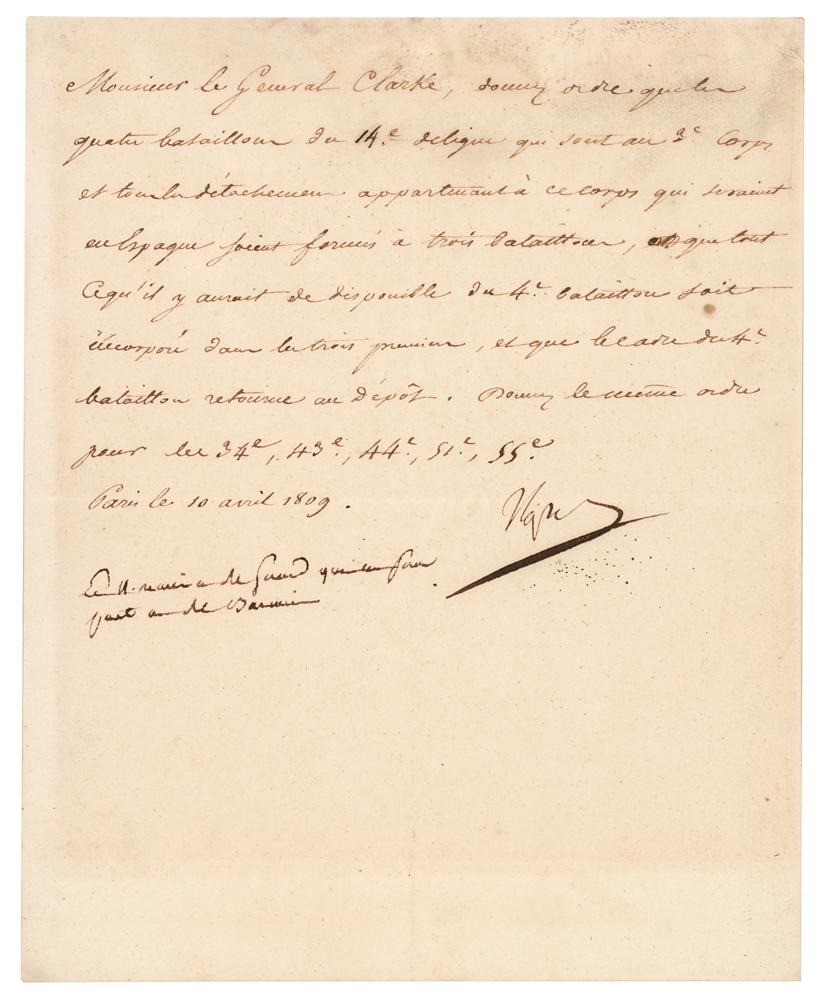 Monsieur le General Clarke, donnez ordre que les
quatre bataillons du 14.e de ligne qui sont au 3e Corps
et tous les détachemens appartenant à ce corps qui seraient
en Espagne soient formés à trois bataillons, et que tout
ce qu'il y aurait de disponible du 4.e bataillon soit
incorporé dans les trois premiers, et que le cadre du 4.e
bataillon retourne au Dépôt. Donnez le même ordre
pour les 34e, 43e, 44e, 51e, 55e.
Paris le 10 avril 1809.
Nap